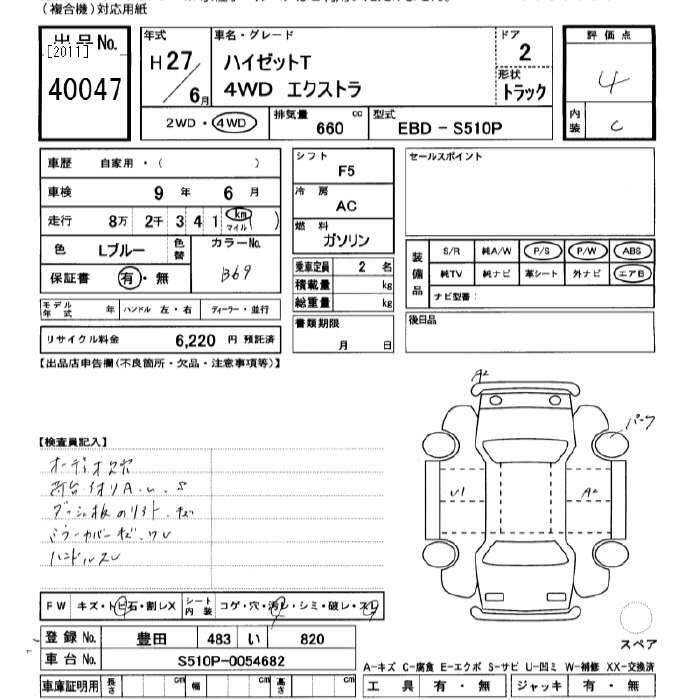 （複合機）対応用紙
出品No.
[2011]
40047
年式
H27/6月
車名・グレード
ハイゼットT
4WD エクストラ
ドア
2
形状
トラック
2WD・4WD
排気量
660 cc
型式
EBD - S510P
評価点
4
内装
C
車歴 自家用・( )
車検 9 年 6 月
走行 8万 2千 3 4 1 (km マイル)
色 Lブルー 色替 カラーNo. B69
保証書 有・無
モデル年式 年 ハンドル 左・右 ディーラー・並行
リサイクル料金 6,220 円 預託済
シフト
F5
冷房
AC
燃料
ガソリン
乗車定員 2 名
積載量 kg
総重量 kg
書類期限
月 日
セールスポイント
装備品
S/R 純A/W P/S P/W ABS
純TV 純ナビ 革シート 外ナビ エアB
ナビ型番：
後日品
【出品店申告欄(不良箇所・欠品・注意事項等)】
【検査員記入】
オーディオ欠
荷台
ダッシュ板
ミラーカバー
ハンドルスレ
A2
パンク
U1
A2
FW キズ・トビ石・割レX シート内装 コゲ・穴・汚レ・シミ・破レ・スレ
登録No. 豊田 483 い 820
車台No. S510P-0054682
車庫証明用 長さ cm 幅 cm 高さ cm
スペア
A-キズ C-腐食 E-エクボ S-サビ U-凹ミ W-補修 XX-交換済
工具 有・無 ジャッキ 有・無